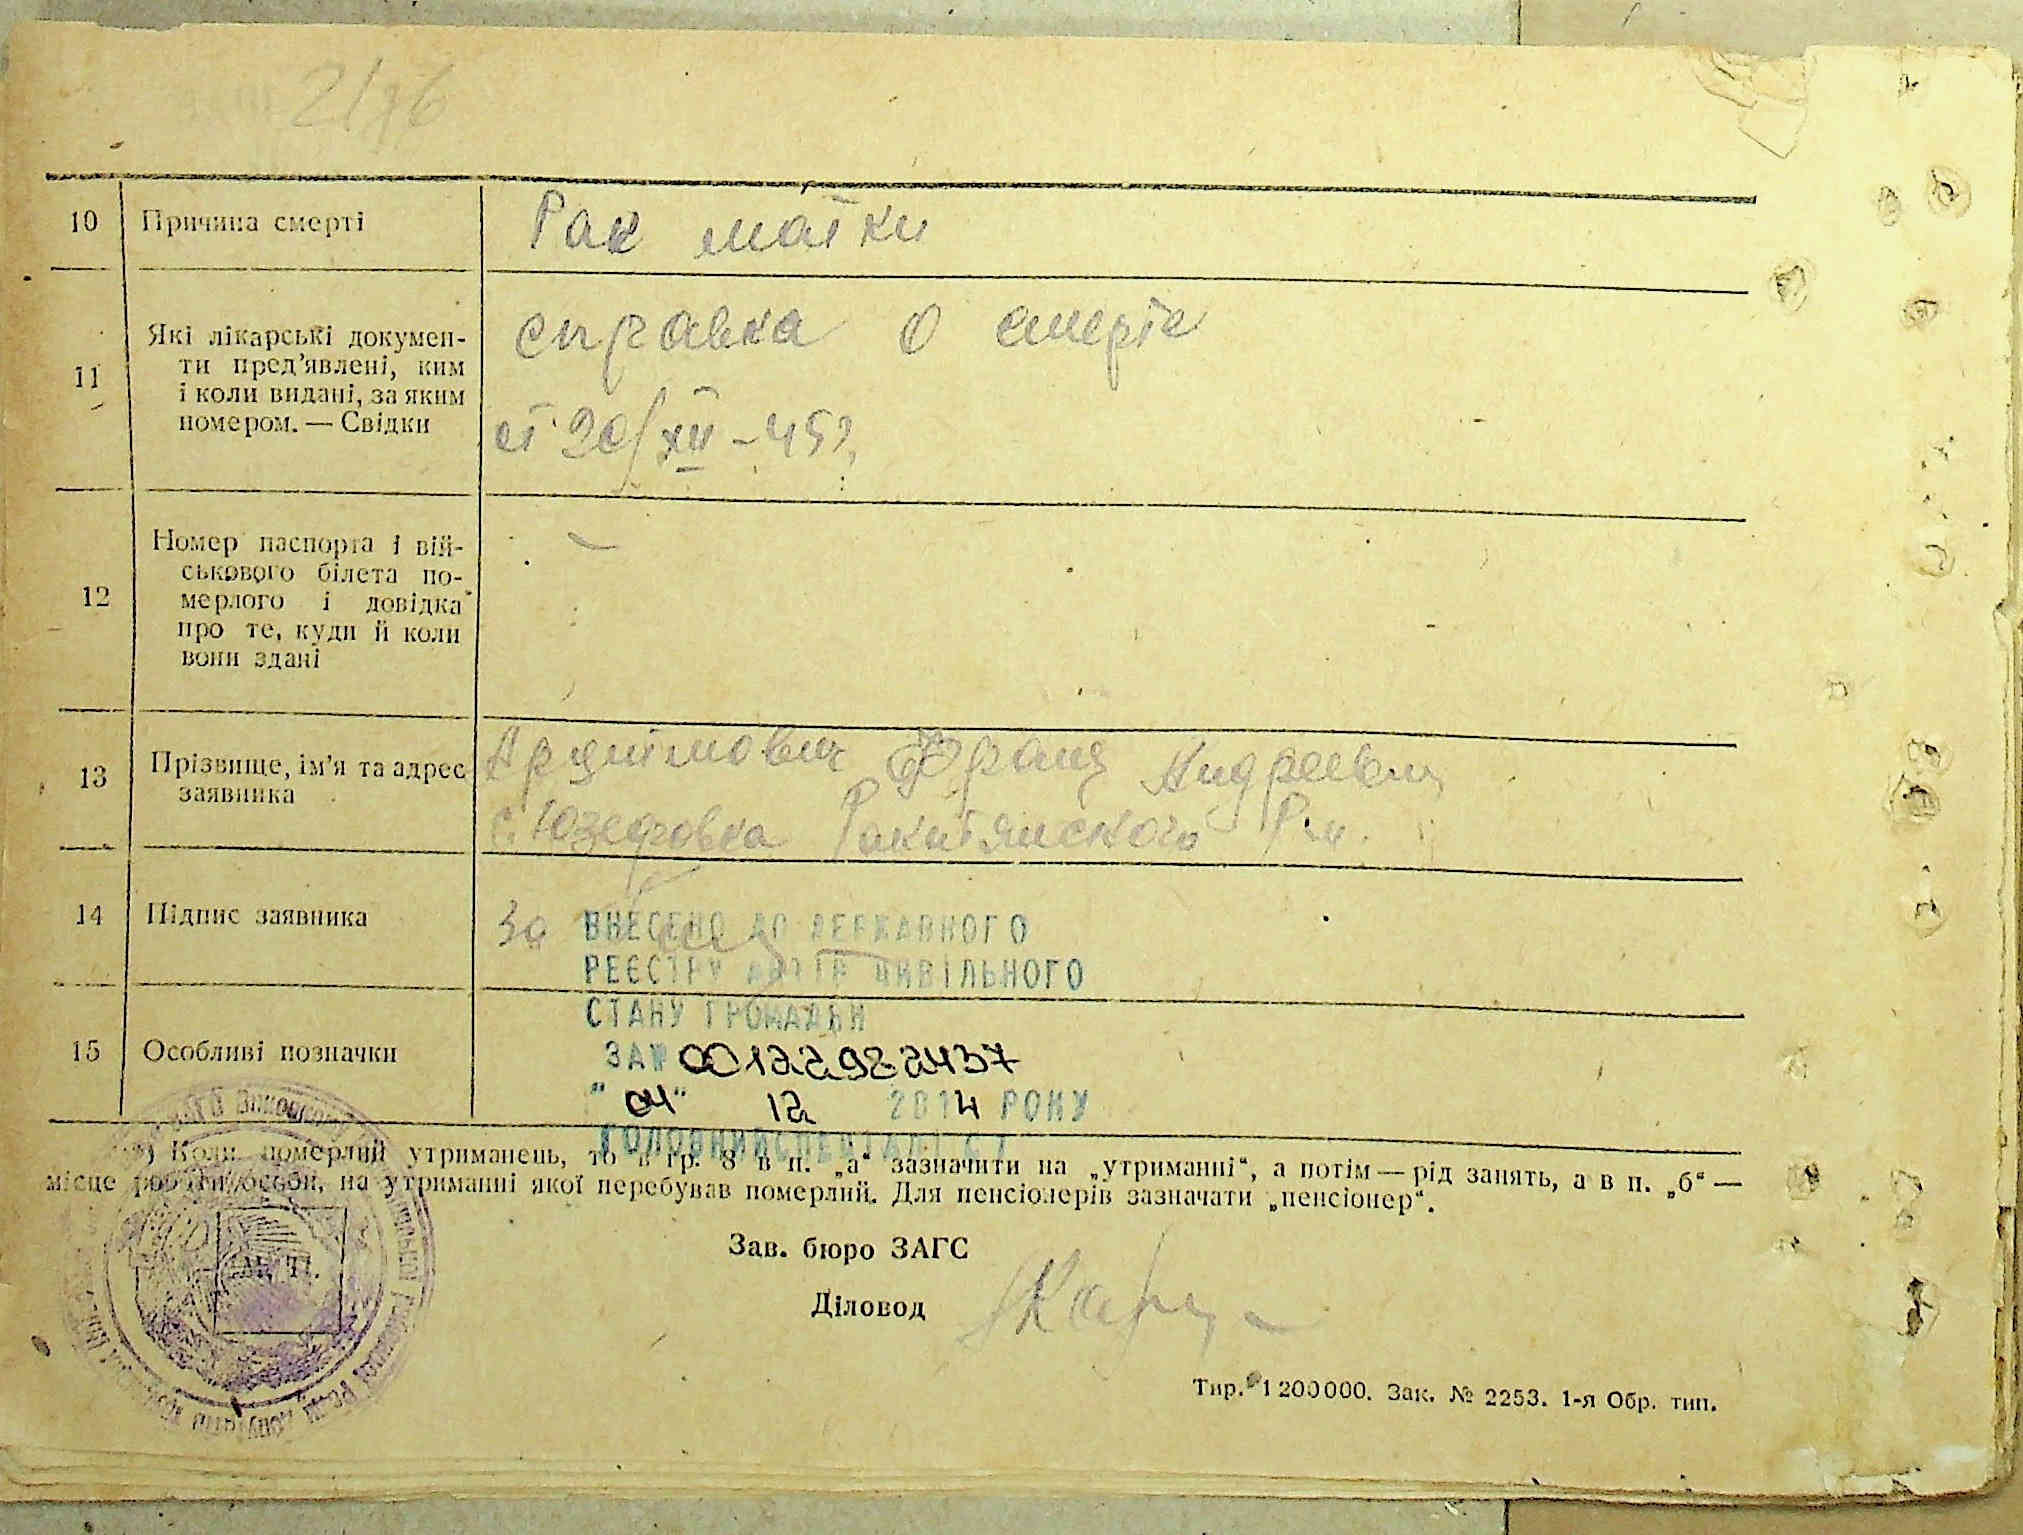 10 Причина смерті Рак матки
11 Які лікарські докумен-
ти пред’явлені, ким
і коли видані, за яким
номером. — Свідки
справка о смерти
от 20/XII – 45г.
12 Номер паспорта і вій-
ськового білета по-
мерлого і довідка
про те, куди й коли
вони здані
–
13 Прізвище, ім’я та адрес
заявника
Франц Андреевич
с. Юзефовка Ракитянского Р-н.
14 Підпис заявника За
ВНЕСЕНО ДО ДЕРЖАВНОГО
РЕЄСТРУ АКТІВ ЦИВІЛЬНОГО
СТАНУ ГРОМАДЯН
15 Особливі позначки
ЗА№ 00122982437
"04" 12 2014 РОКУ
ГОЛОВНИЙ СПЕЦІАЛІСТ
*) Коли померлий утриманець, то в гр. 8 в п. „а“ зазначити на „утриманні“, а потім — рід занять, а в п. „б“ —
місце роботи особи, на утриманні якої перебував померлий. Для пенсіонерів зазначати „пенсіонер“.
Зав. бюро ЗАГС
Діловод
Тир. 1 200000. Зак. № 2253. 1-я Обр. тип.